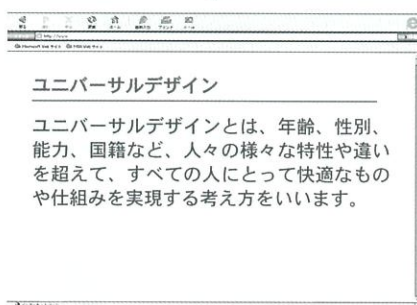 ユニバーサルデザイン
ユニバーサルデザインとは、年齢、性別、
能力、国籍など、人々の様々な特性や違い
を超えて、すべての人にとって快適なもの
や仕組みを実現する考え方をいいます。